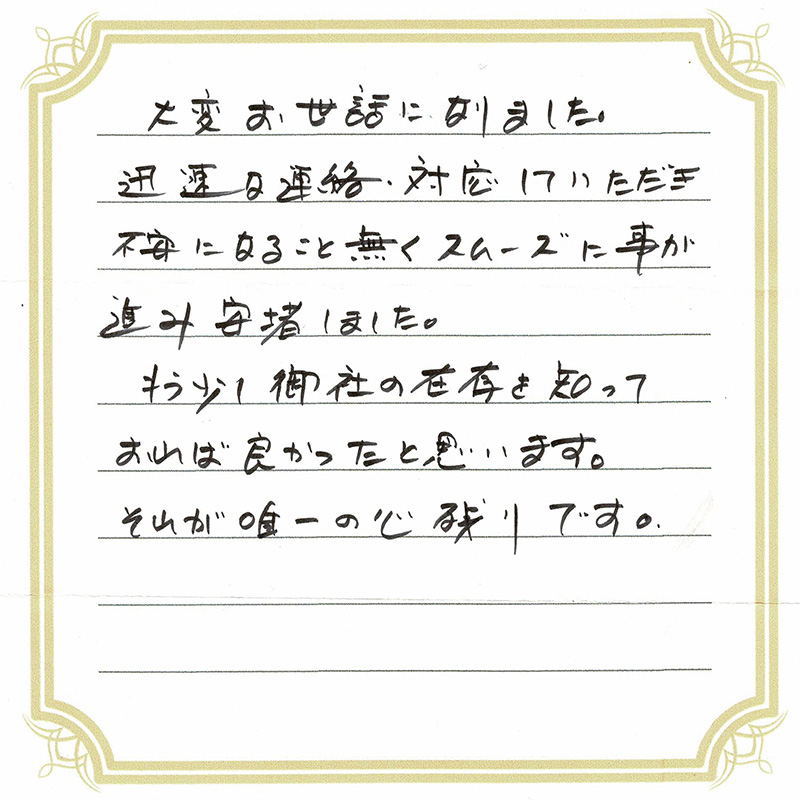 大変お世話になりました。
迅速な連絡・対応していただき
不安になること無くスムーズに事が
進み安堵しました。
もう少し御社の在存を知って
おれば良かったと思います。
それが唯一の心残りです。